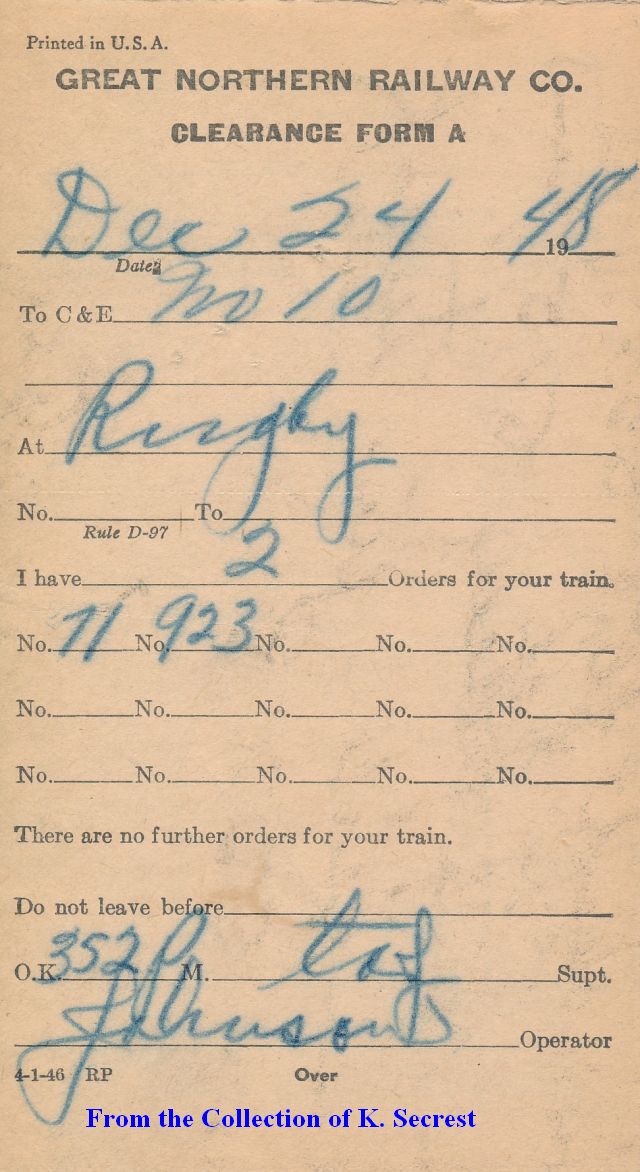 Printed in U. S. A.
GREAT NORTHERN RAILWAY CO.
CLEARANCE FORM A
Dec 24 19 48
Date
To C & E No 10
At Rugby
No. To
Rule D-97
I have 2 Orders for your train.
No. 71 No. 923 No. No. No.
No. No. No. No. No.
No. No. No. No. No.
There are no further orders for your train.
Do not leave before
O.K. 352 P M. Supt.
Johnson Operator
4-1-46 RP Over
From the Collection of K. Secrest